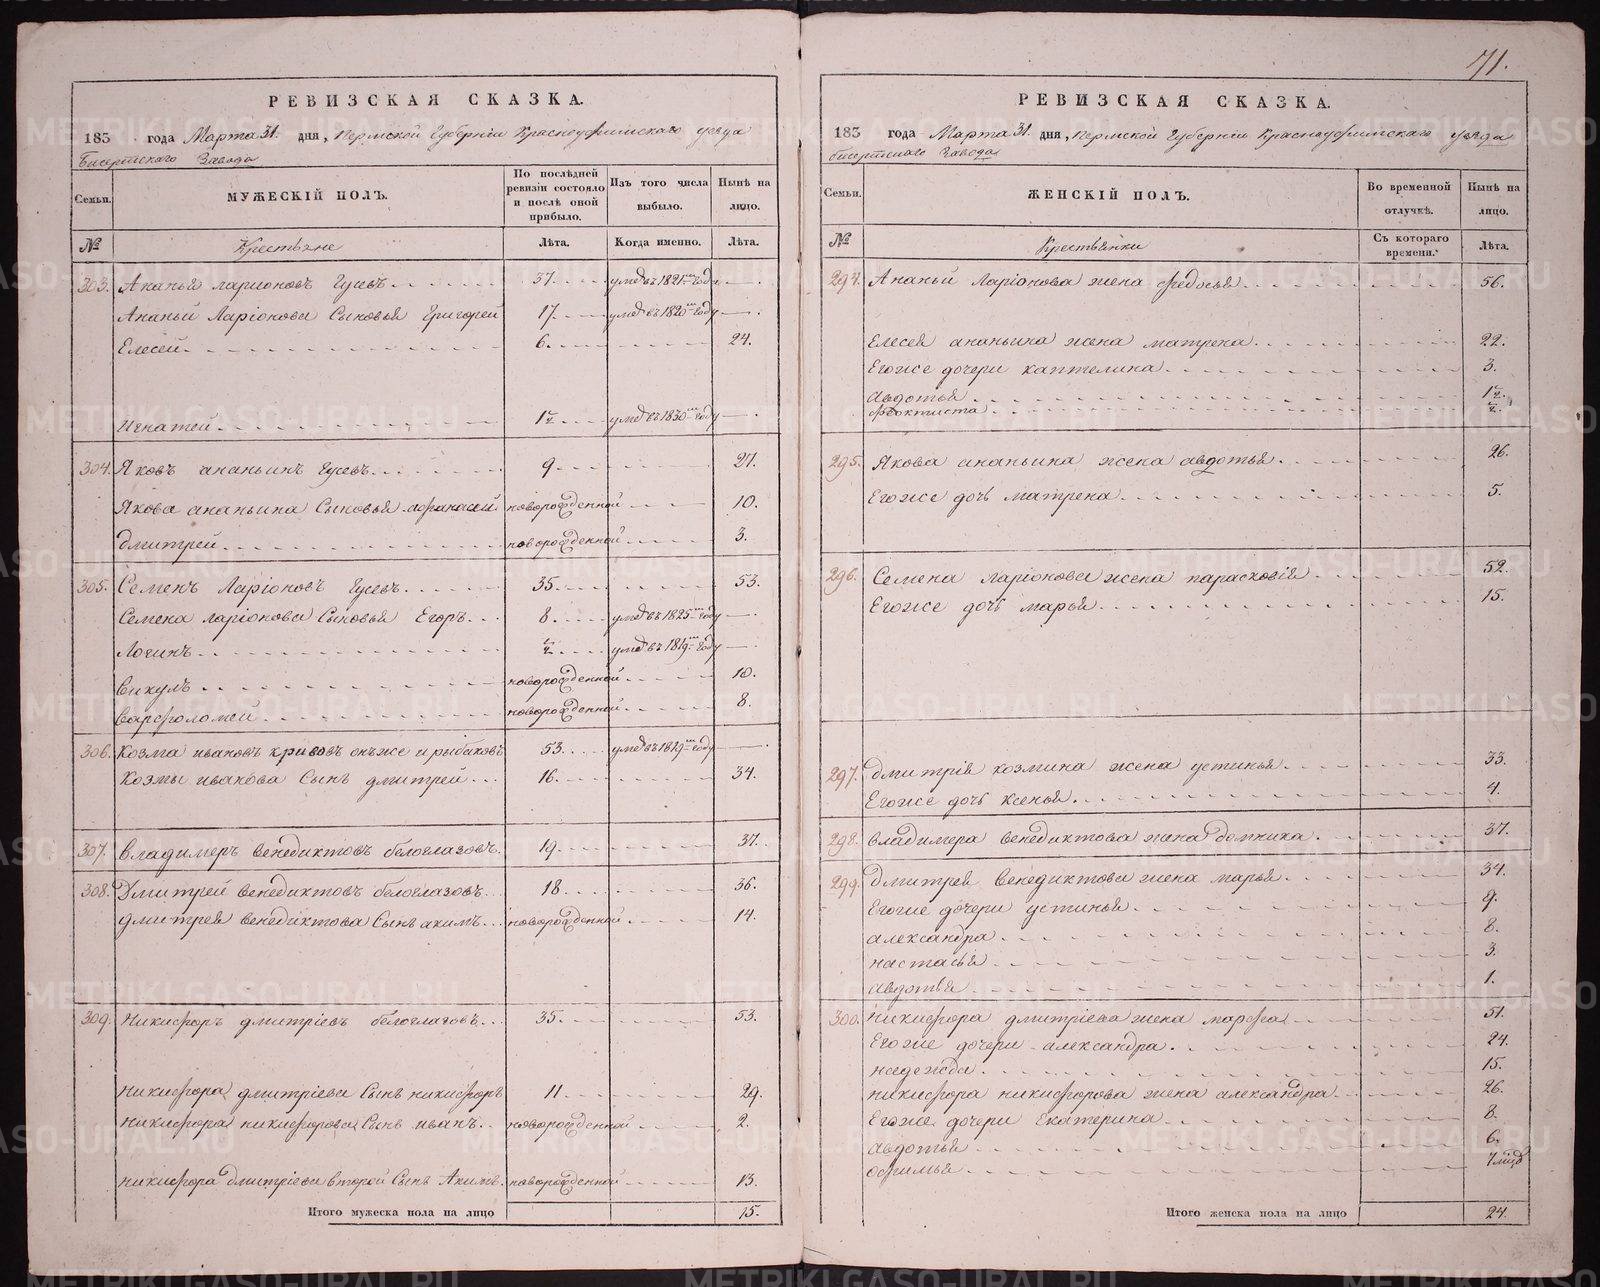 71.
РЕВИЗСКАЯ СКАЗКА.
183 года Марта 31. дня, Пермской Губерніи Красноуфимскаго уезда
Бисертскаго Завода
Семьи.
МУЖЕСКІЙ ПОЛЪ.
По послѣдней ревизіи состояло и послѣ оной прибыло.
Изъ того числа выбыло.
Нынѣ на лицо.
№
Крестьяне
Лѣта.
Когда именно.
Лѣта.
303. Ананья ларионовъ Гусевъ 37. умеръ въ 1821 году
Ананьи Ларіонова Сыновья Григорей 17. умеръ въ 1820 году
Елесей 6. 24.
Игнатей 1 1/2 умеръ въ 1830 году
304. Яковъ ананьинъ Гусевъ 9 27.
Якова ананьина Сыновья афанасий новорожденной 10.
Дмитрей новорожденной 3.
305. Семенъ Ларіоновъ Гусевъ 35. 53.
Семена ларіонова Сыновья Егоръ 8. умеръ въ 1825 году
Логинъ 1/2 умеръ въ 1819 году
викулъ новорожденной 10.
варфоломей новорожденной 8.
306. Козма ивановъ кривовъ онъже и рыбаковъ 53. умеръ въ 1829 году
Козмы иванова Сынъ дмитрей 16. 34.
307. владимеръ венедиктовъ белоглазовъ. 19. 37.
308. Дмитрей венедиктовъ белоглазовъ 18. 36.
дмитрея венедиктова Сынъ акимъ новорожденной 14.
309. Никифоръ дмитріевъ белоглазовъ 35. 53.
никифора дмитріева Сынъ никифоръ 11. 29.
никифора никифорова Сынъ иванъ новорожденной 2.
никифора дмитріева второй Сынъ Акимъ. новорожденной 13.
Итого мужеска пола на лицо 15.
РЕВИЗСКАЯ СКАЗКА.
183 года Марта 31. дня, Пермской Губерніи Красноуфимскаго уезда
бисертскаго Завода
Семьи.
ЖЕНСКІЙ ПОЛЪ.
Во временной отлучкѣ.
Нынѣ на лицо.
№
Крестьянки
Съ котораго времени.
Лѣта.
294. Ананьи Ларіонова жена федосья 56.
Елесея ананьина жена матрена 22.
Егоже дочери каптелина 3.
авдотья 1 1/2.
феоктиста 1/2.
295. Якова ананьина жена авдотья 26.
Егоже дочь матрена 5.
296. Семена ларіонова жена парасковія 52.
Егоже дочь марья 15.
297. Дмитрія козмина жена устинья 33.
Егоже дочь ксенья. 4.
298. владимера венедиктова жена домника. 37.
299. Дмитрея венедиктова жена марья 34.
Егоже дочери устинья 9.
александра 8.
настасья 3.
авдотья 1.
300. Никифора дмитріева жена марфа 51.
Егоже дочери александра. 24.
надежда 15.
никифора никифорова жена александра 26.
Егоже дочери Екатерина 8.
авдотья 6.
офимья
Итого женска пола на лицо 24.
METRIKI.GASO-URAL.RU